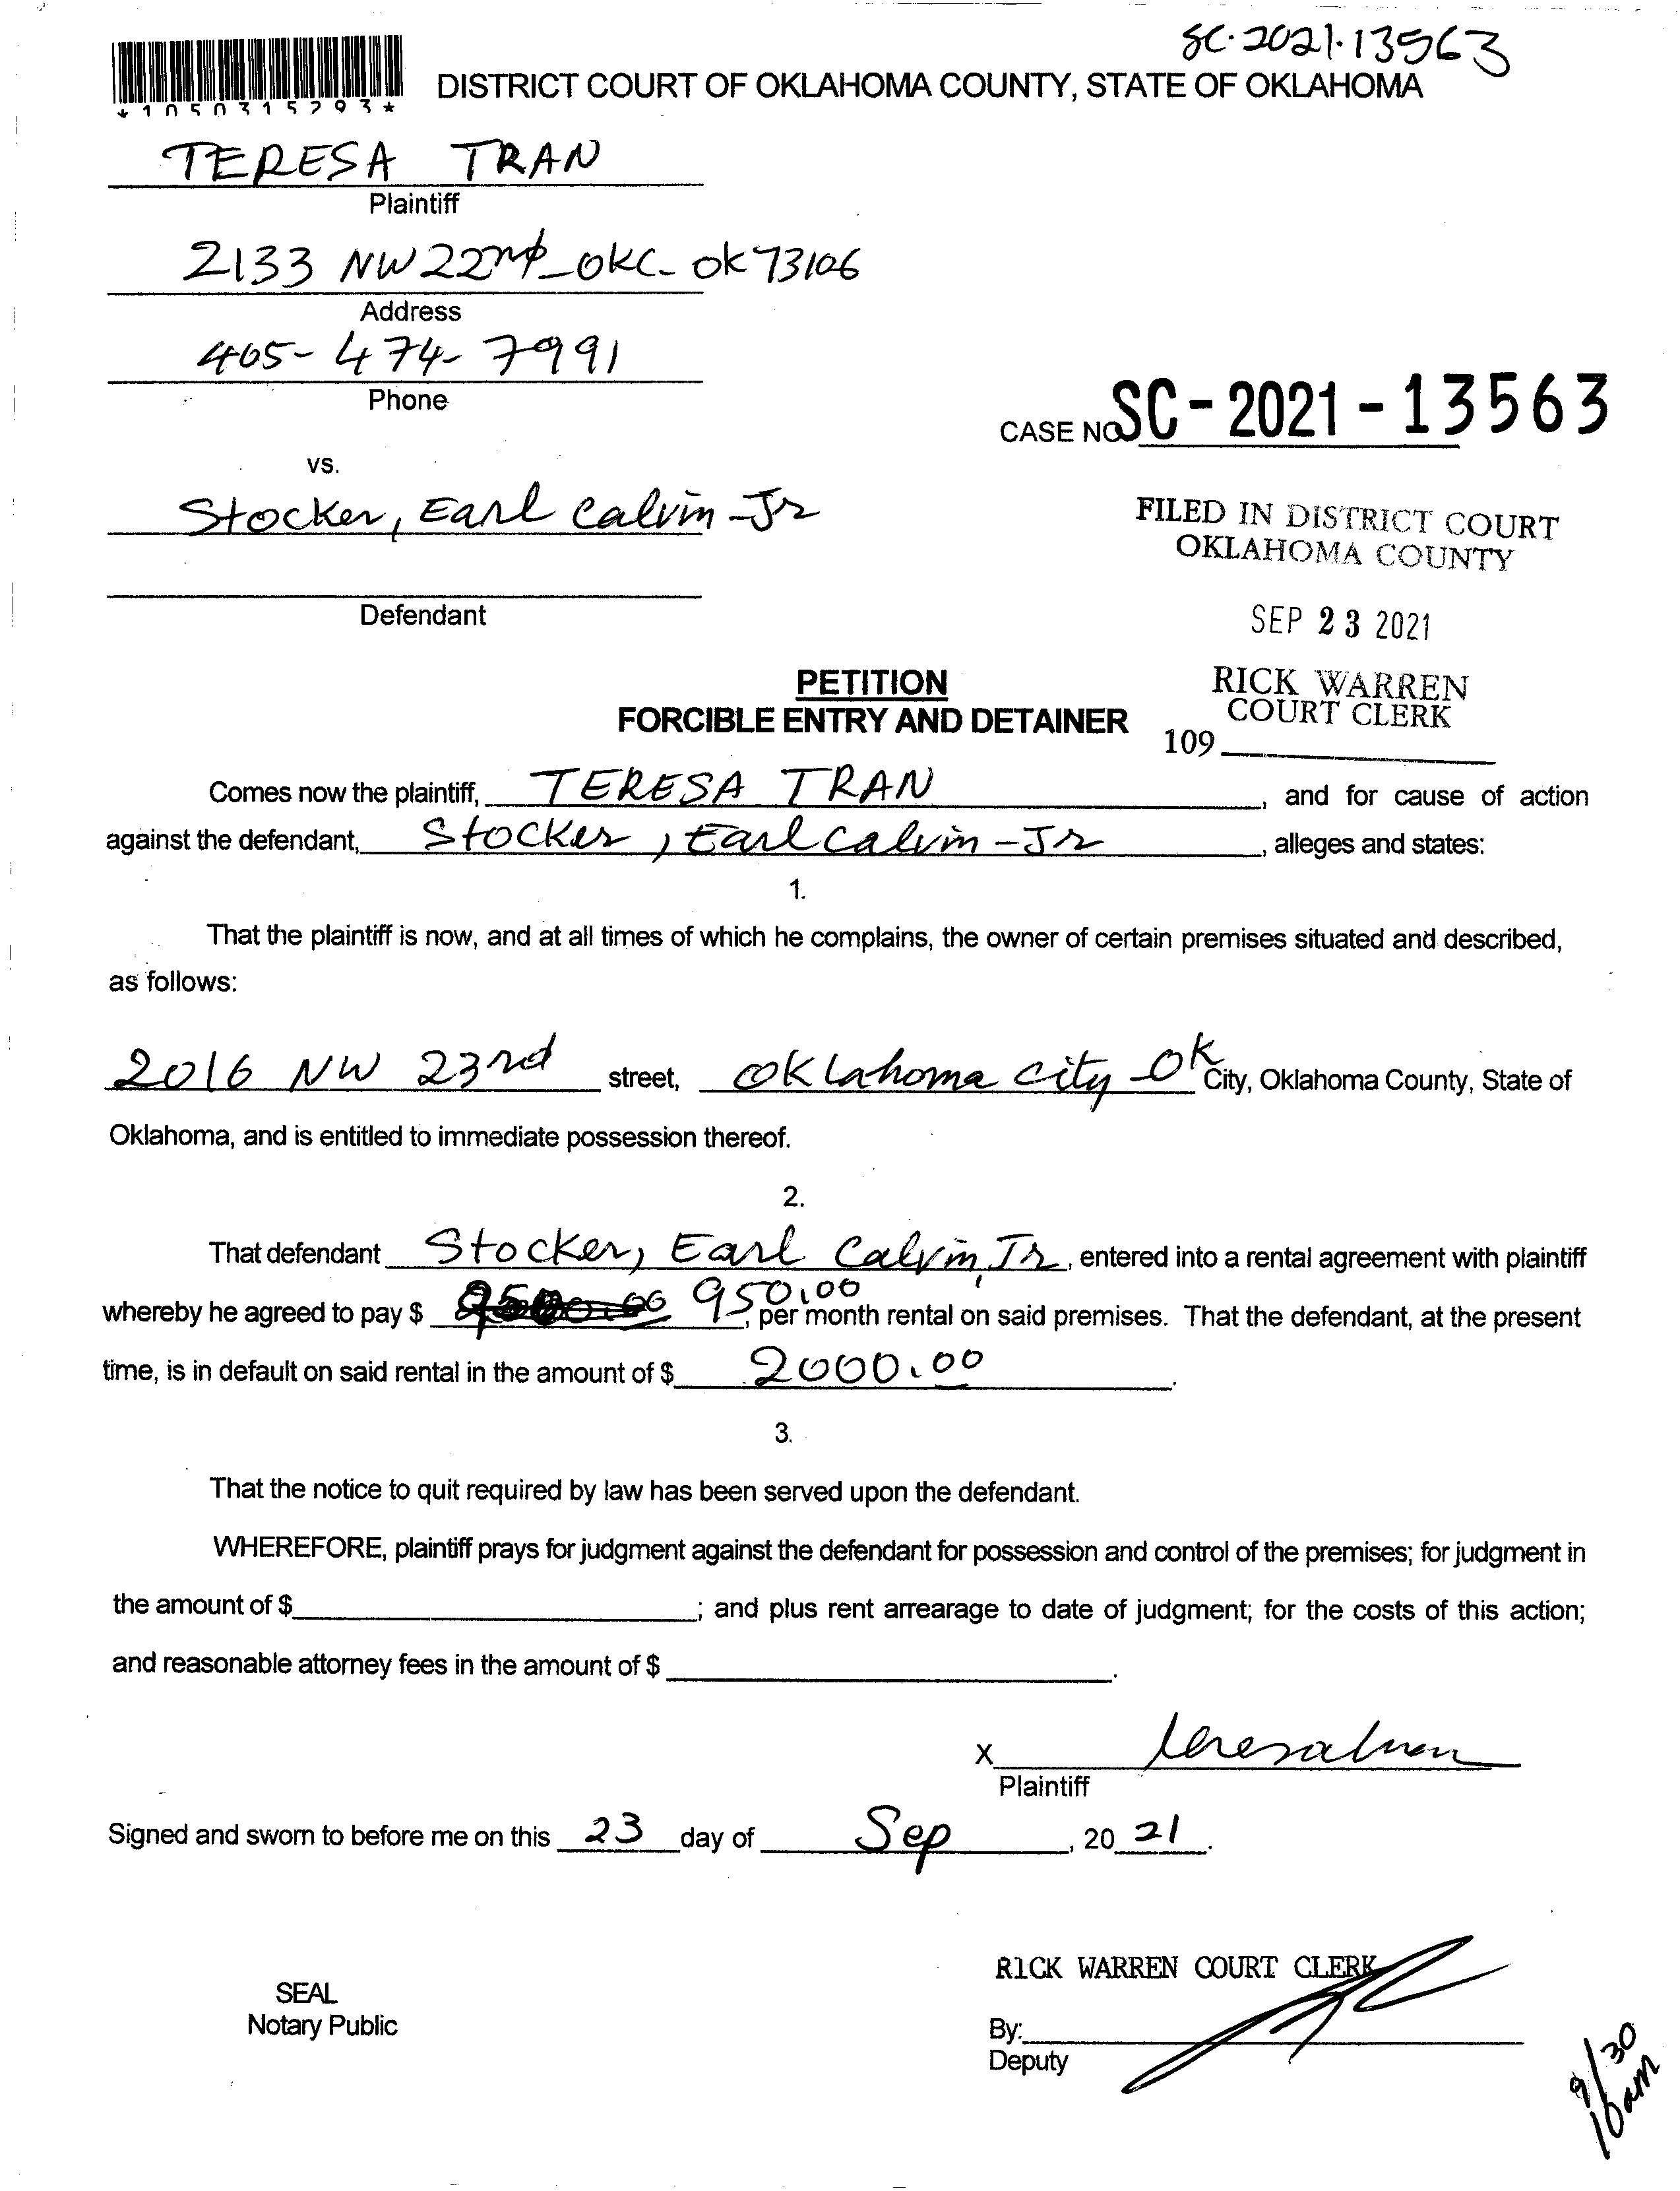 SC-2021-13563
*1050315293*
DISTRICT COURT OF OKLAHOMA COUNTY, STATE OF OKLAHOMA
TERESA TRAN
Plaintiff
2133 NW 22nd - OKC - OK 73106
Address
405-474-7991
Phone
CASE NO. SC-2021-13563
vs.
Stocker, Earl Calvin - Jr
Defendant
FILED IN DISTRICT COURT
OKLAHOMA COUNTY
SEP 23 2021
RICK WARREN
COURT CLERK
109
PETITION
FORCIBLE ENTRY AND DETAINER
Comes now the plaintiff, TERESA TRAN, and for cause of action
against the defendant, Stocker, Earl Calvin - Jr, alleges and states:
1.
That the plaintiff is now, and at all times of which he complains, the owner of certain premises situated and described,
as follows:
2016 NW 23rd street, Oklahoma city - OK City, Oklahoma County, State of
Oklahoma, and is entitled to immediate possession thereof.
2.
That defendant Stocker, Earl Calvin, Jr, entered into a rental agreement with plaintiff
whereby he agreed to pay $ 950.00, per month rental on said premises. That the defendant, at the present
time, is in default on said rental in the amount of $ 2000.00.
3.
That the notice to quit required by law has been served upon the defendant.
WHEREFORE, plaintiff prays for judgment against the defendant for possession and control of the premises; for judgment in
the amount of $ ; and plus rent arrearage to date of judgment; for the costs of this action;
and reasonable attorney fees in the amount of $ .
X Teresa Tran
Plaintiff
Signed and sworn to before me on this 23 day of Sep, 20 21.
SEAL
Notary Public
RICK WARREN COURT CLERK
By:
Deputy
9/30
10am